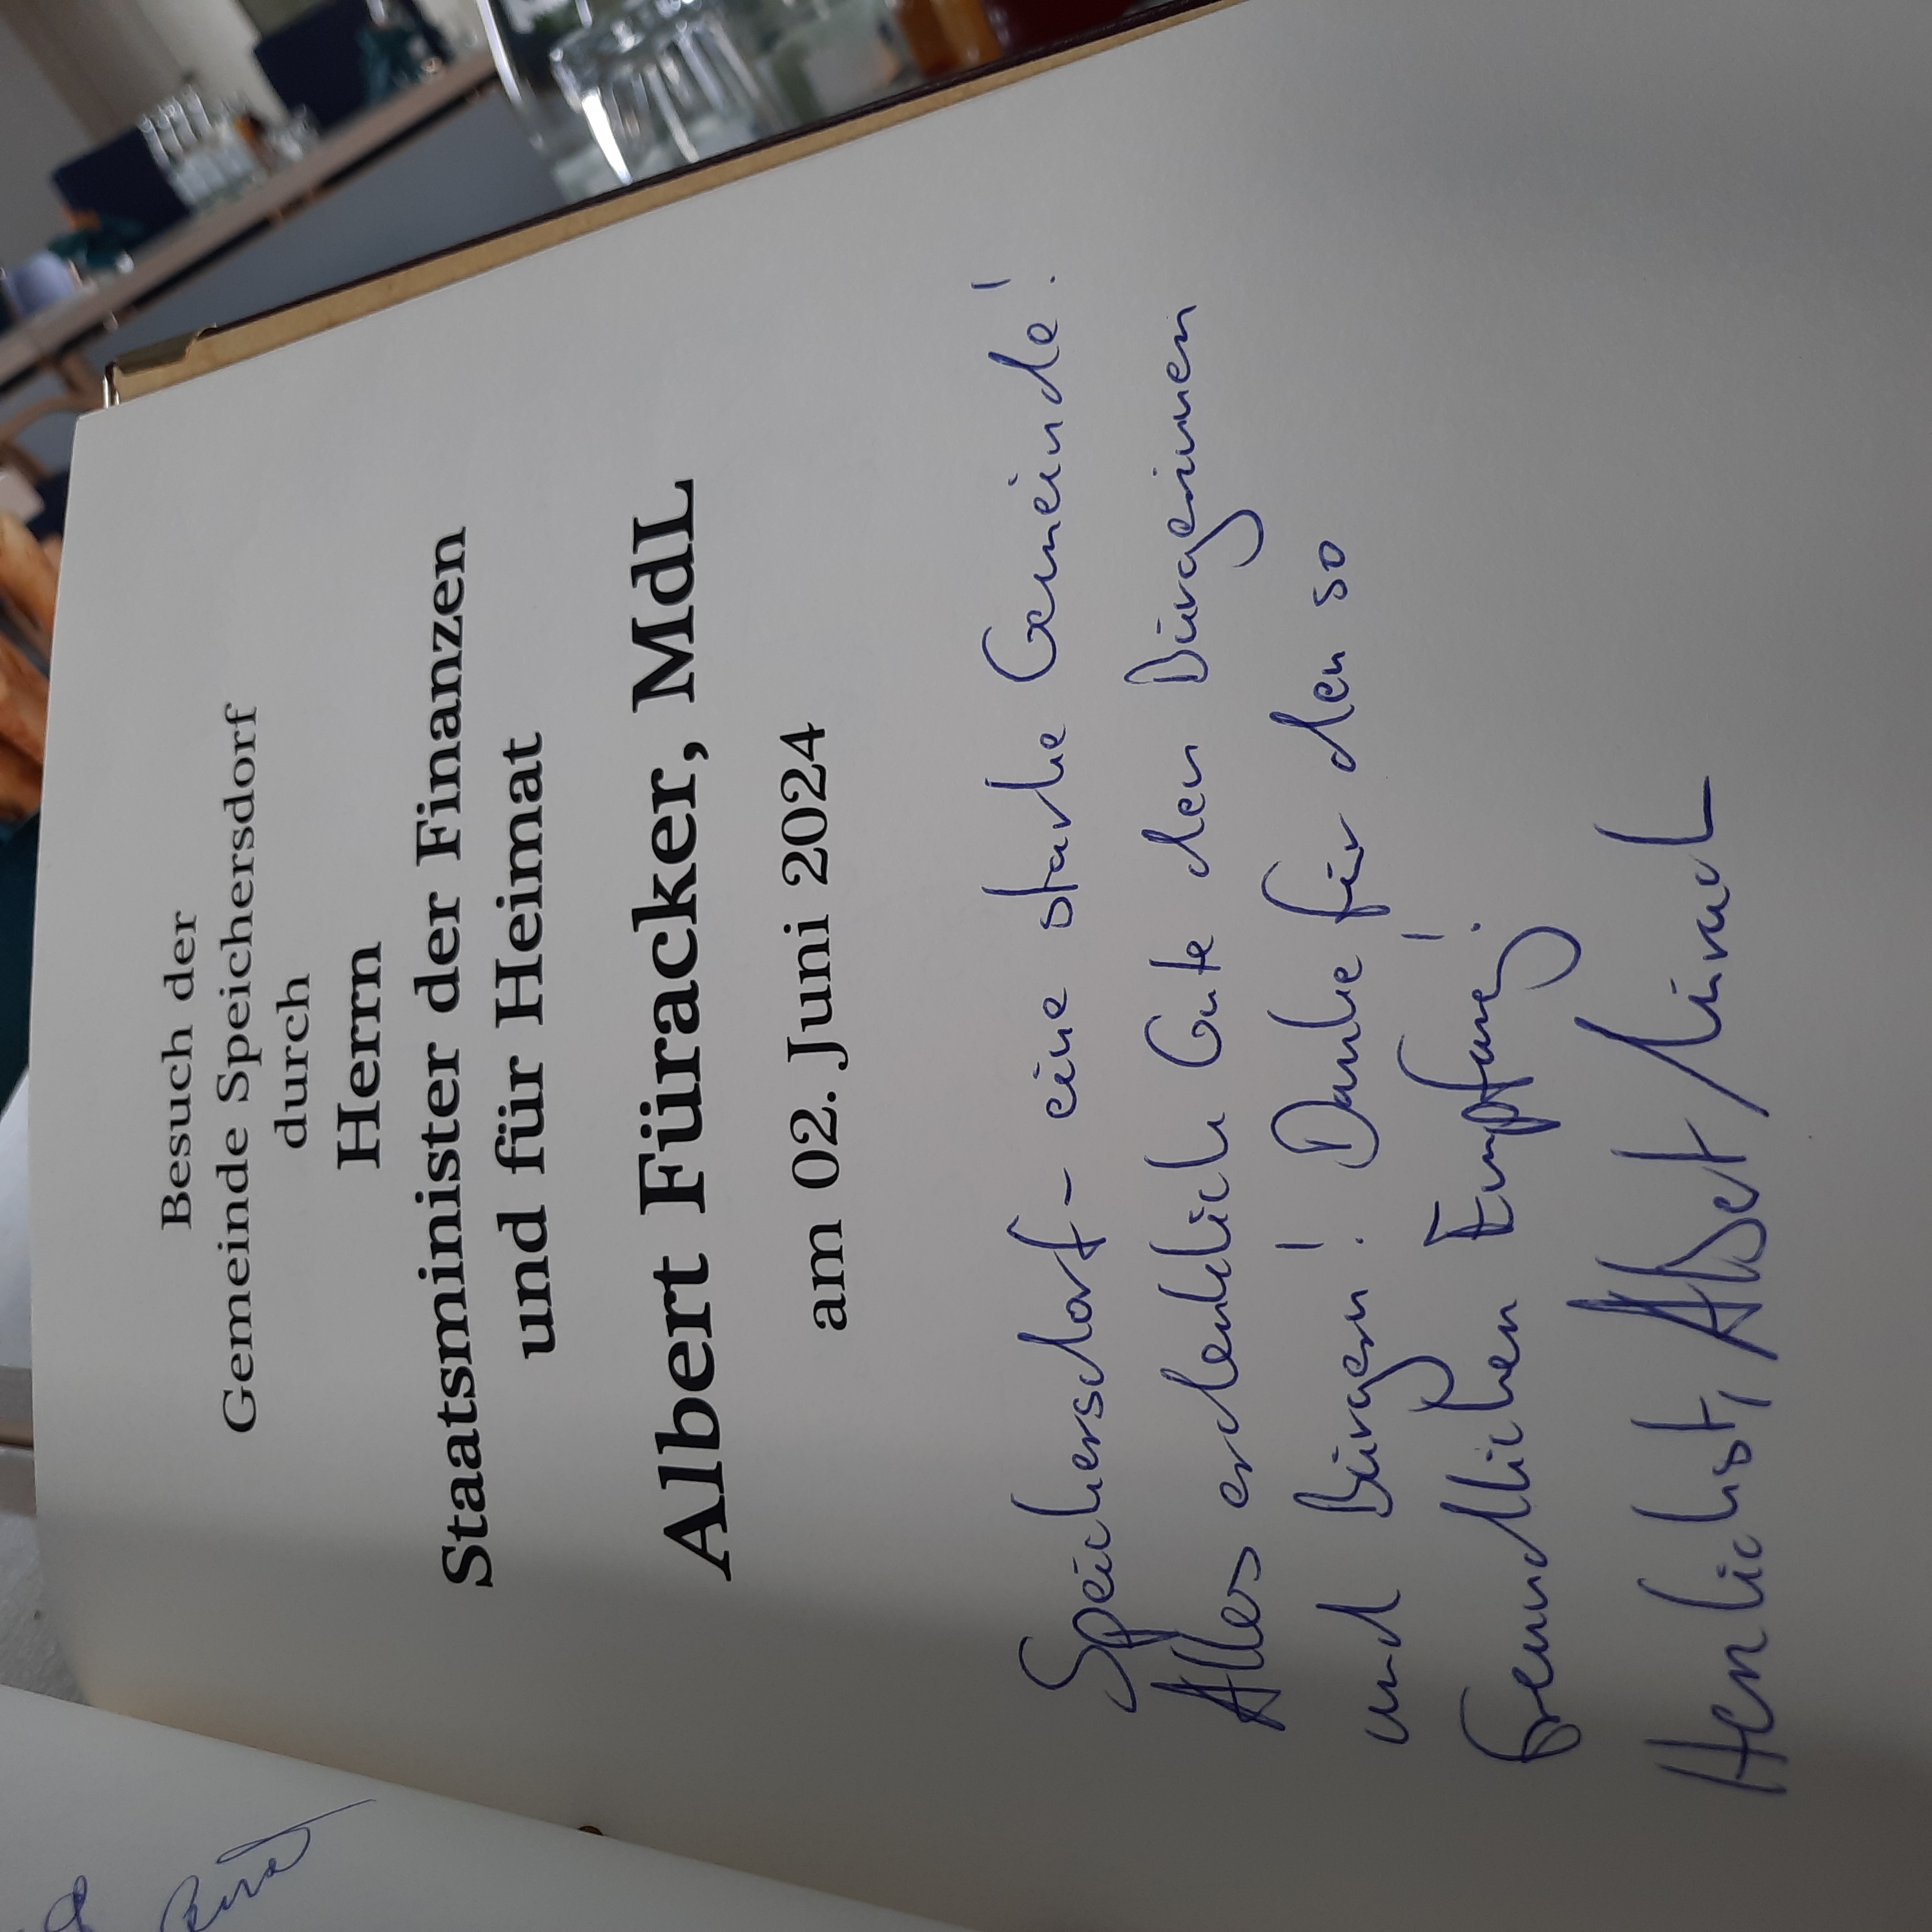 Besuch der
Gemeinde Speichersdorf
durch
Herrn
Staatsminister der Finanzen
und für Heimat
Albert Füracker, MdL
am 02. Juni 2024
Speichersdorf - eine starke Gemeinde!
Alles erdenklich Gute den Bürgerinnen
und Bürgern! Danke für den so
freundlichen Empfang!
Herzlichst, Albert Füracker